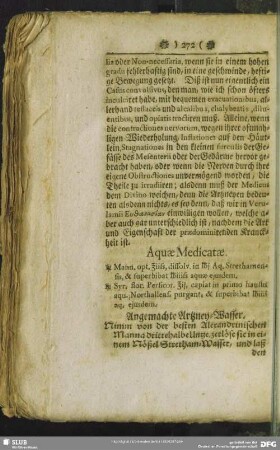 272
lis oder Non-necessaria, wenn sie in einem hohen
grade fehlerhafftig sind, in eine geschwinde, hefti-
ge Bewegung gesetzt. Diß ist nun eigentlich ein
Casus convulsivus, den man, wie ich schon öfters
inculciret habe, mit bequemen evacuationibus, al-
lerhand und alcalibus,
entibus, und opiatis tractiren muß. Alleine, wenn
die contractiones nervorum, wegen ihrer offtmah-
ligen Wiederholung, auf den Häut-
lein, Stagnationes in den kleinen surculis der Ge-
fässe des Mesenterii oder der Gedärme hervor ge-
bracht haben, oder wenn die Nerven durch ihre
eigene Obstructiones unvermögend worden, die
Theile zu irradiiren; alsdenn muß der Medicus
dem Divino weichen, denn die Artzneyen bedeu-
ten alsdenn nichts, es sey denn, daß wir in Veru-
lamii einwilligen wolten, welche a-
ber auch gar unterschiedlich ist, nachdem die Art
und Eigenschafft der prædominirenden Kranck-
heit ist.
Aquæ Medicatæ.
Mann. opt. dissolv. in Aq. Strethamen-
sis, & superbibat aquæ ejusdem.
Syr. Persicor. capiat in primo haustu
aqu. Northallens. purgant. & superbibat
aq. ejusdem.
Angemachte Artzney-Wasser.
Nimm von der besten Alexandrinischen
Manna drittehalbe Untze, zerlöse sie in ei-
nem Nößel Stretham-Wasser, und laß
den
SLUB